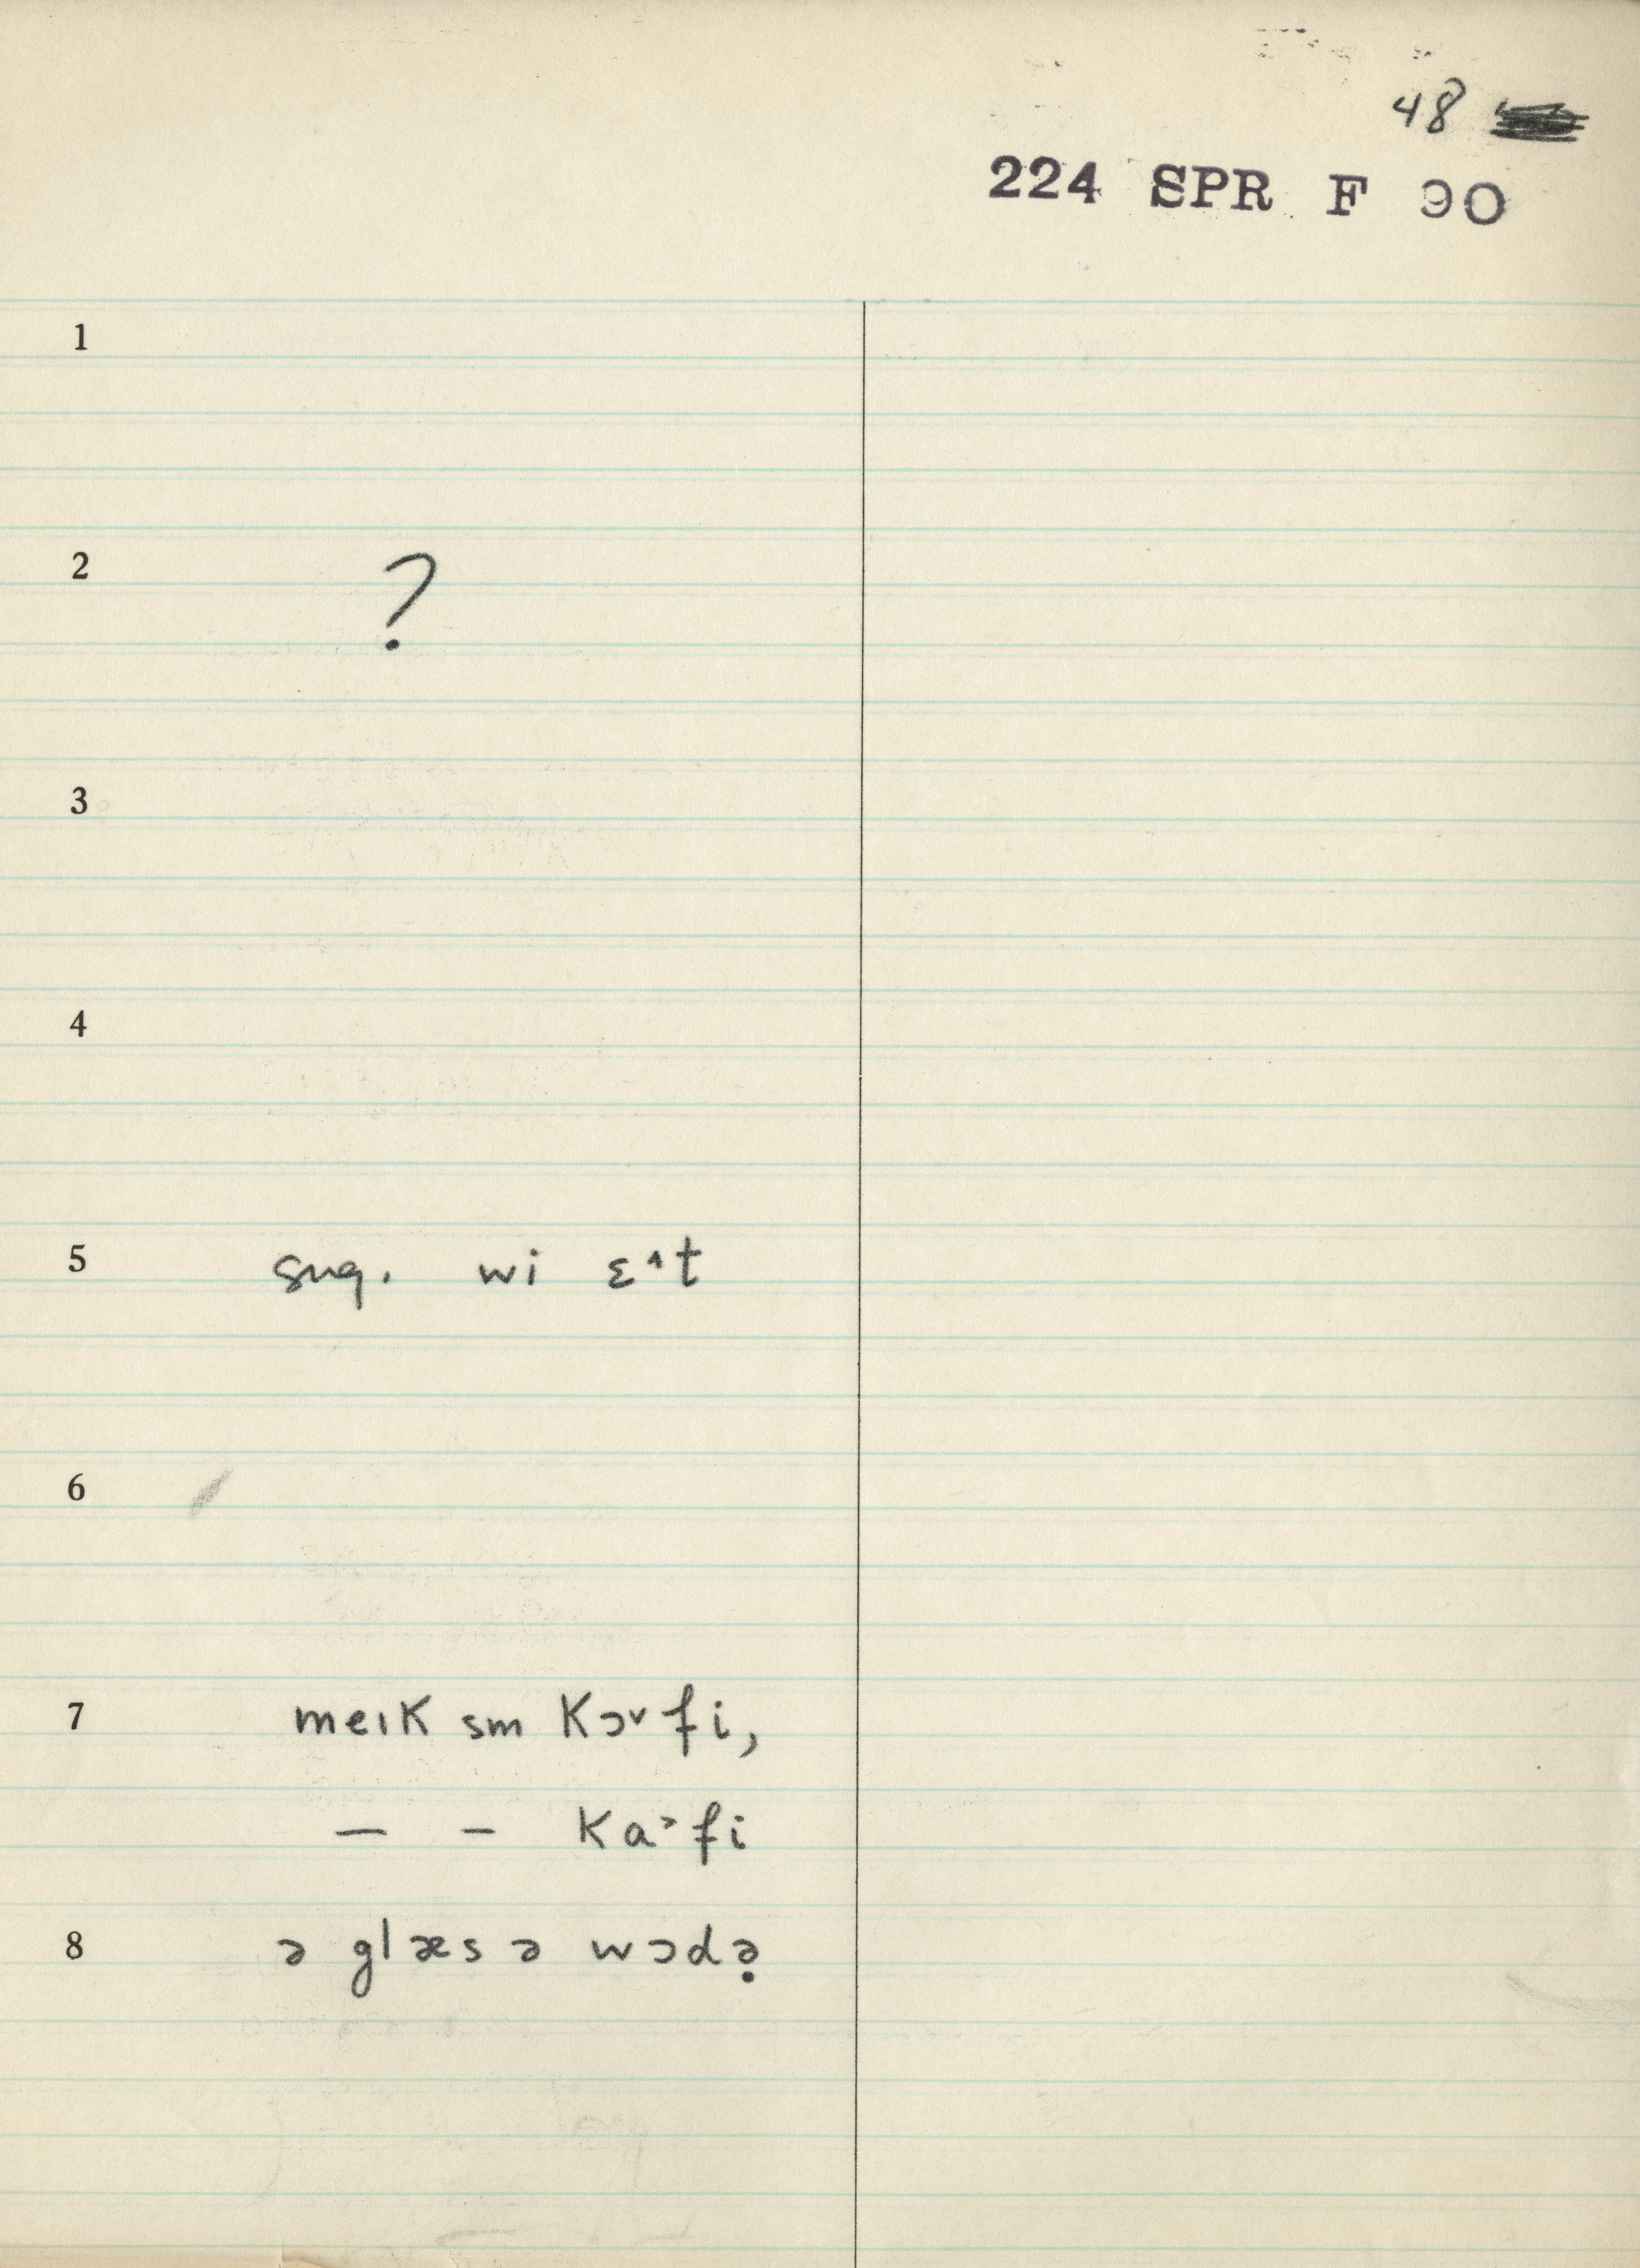 48
224 SPR F 90
1
2 ?
3
4
5 sug. wi ɛ˄t
6
7 meık sm kɔ˅fi,
— – ka˃fi
8 ə glæs ə wɔdə̣